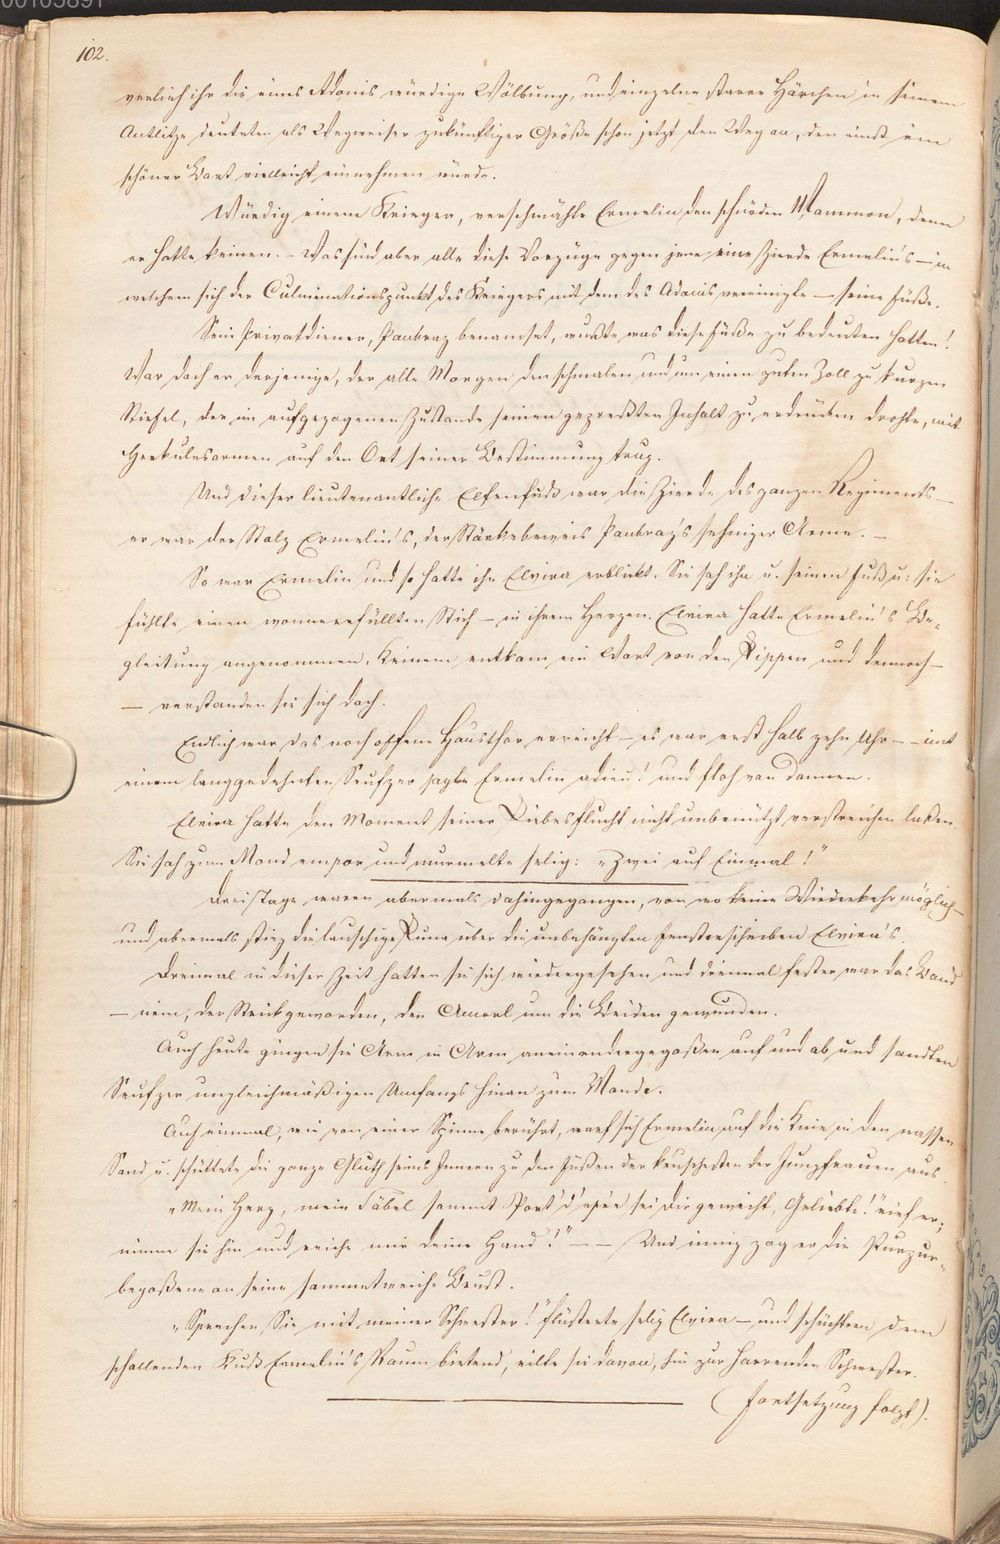 00105891
102.
verlieh ihr die eines Adonis würdige Wölbung, und einzelne starre Härchen in seinem
Antlitze deuteten als Wegweiser zukünftiger Größe schon jetzt den Weg an, den einst ein
schöner Bart vielleicht einnehmen würde.
Würdig einem Krieger, verschmähte Ermelin den schnöden Mammon, denn
er hatte keinen. – Was sind aber alle diese Vorzüge gegen jene eine Zierde Ermelin's – in
welchem sich der Culminationspunkt des Kriegers mit dem des Adonis vereinigte – seine Füße.
Sein Privatdiener, Pankraz benamset, wußte was diese Füße zu bedeuten hatten!
War doch er derjenige, der alle Morgen den schmalen und um einen guten Zoll zu kurzen
Stiefel, der im aufgezogenen Zustande seinen gepreßten Inhalt zu erdrücken drohte, mit
Herkulesarmen auf den Ort seiner Bestimmung trug.
Und dieser lieutenantliche Elfenfuß war die Zierde des ganzen Regiments –
er war der Stolz Ermelin's, der Stärkebeweis Pankraz's sehniger Arme. –
So war Ermelin und so hatte ihn Elvira erblickt. Sie sah ihn u. seinen Fuß u: sie
fühlte einen wonneerfüllten Stich – in ihrem Herzen. Elvira hatte Ermelin's Be-
gleitung angenommen. Keinem entkam ein Wort von den Lippen und dennoch –
– verstanden sie sich doch.
Endlich war das noch offene Hausthor erreicht – es war erst halb zehn Uhr – – mit
einem langgedehnten Seufzer sagte Ermelin adieu! und floh von dannen.
Elvira hatte den Moment seiner Liebesflucht nicht unbenützt verstreichen laßen.
Sie sah zum Mond empor und murmelte selig: „Zwei auf Einmal!"
Drei Tage waren abermals dahingegangen, von wo keine Wiederkehr möglich –
und abermals stieg die lauschige Luna über die unbehängten Fensterscheiben Elvira's.
Dreimal in dieser Zeit hatten sie sich wiedergesehen und dreimal fester war das Band
– nein, der Strick geworden, den Amorl um die Beiden gewunden.
Auch heute gingen sie Arm in Arm aneinandergegoßen auf und ab und sandten
Seufzer ungleichmäßigen Umfangs hinan zum Monde.
Auf einmal, wie von einer Spinne berührt, warf sich Ermelin auf die Knie in den nassen
Sand u. schüttete die ganze Gluth seines Innern zu den Füßen der keuschesten der Jungfrauen aus.
„Mein Herz, mein Säbel sammt Port d'epée sei dir geweiht, Geliebte!" rief er;
nimm sie hin und reiche mir deine Hand!" – – Und innig zog er die Purpur-
begoßene an seine sammetweiche Brust.
„Sprechen Sie mit meiner Schwester!" flüsterte selig Elvira – und schüchtern dem
schallenden Kuß Ermelin's Raum bietend, eilte sie davon, hin zur harrenden Schwester.
(Fortsetzung folgt).